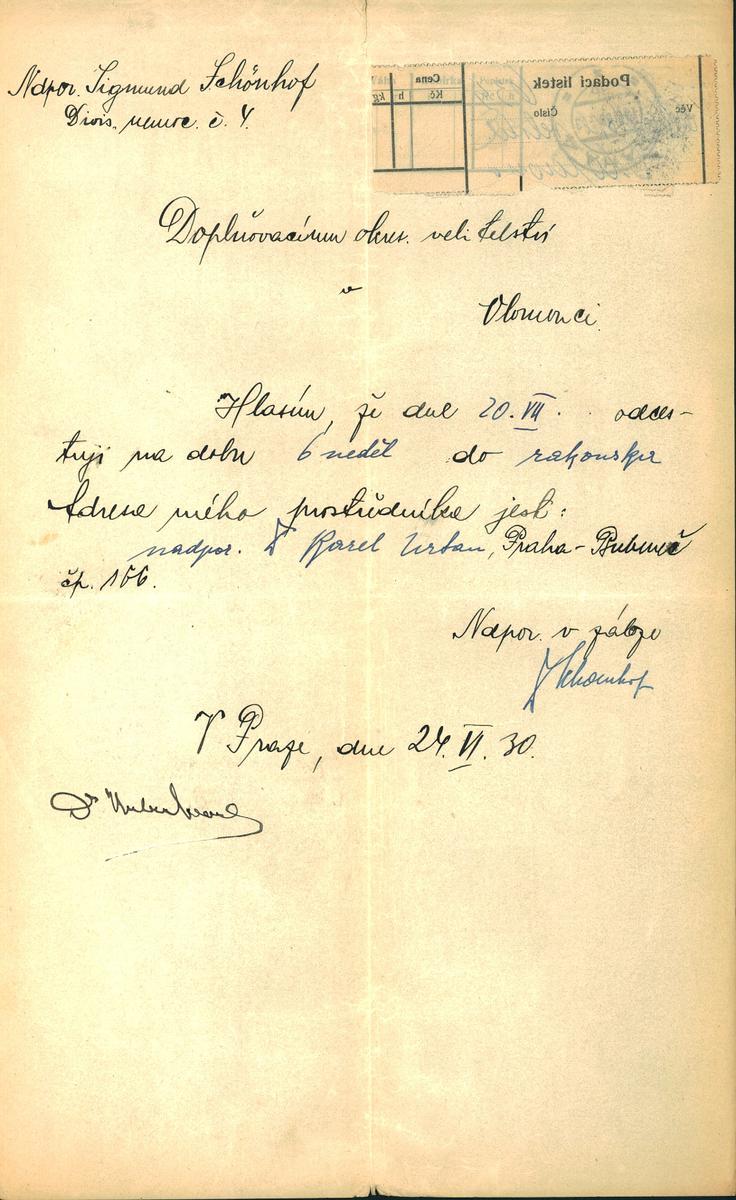 Ndpor. Sigmund Schönhof
Divis. nemoc. č. 4.
Podací lístek
Věc
Číslo
Cena
Kč
h
kg
Doplňovacímu okres. velitelství
v
Olomouci.
Hlásím, že dne 20. VII. odces-
tuji na dobu 6 neděl do rakouska
Adresa mého prostředníka jest:
nadpor. Dr Karel Urban, Praha-Bubeneč
čp. 166.
Ndpor. v záloze
Schoenhof
V Praze, dne 24. VI. 30.
Dr Urban Karel